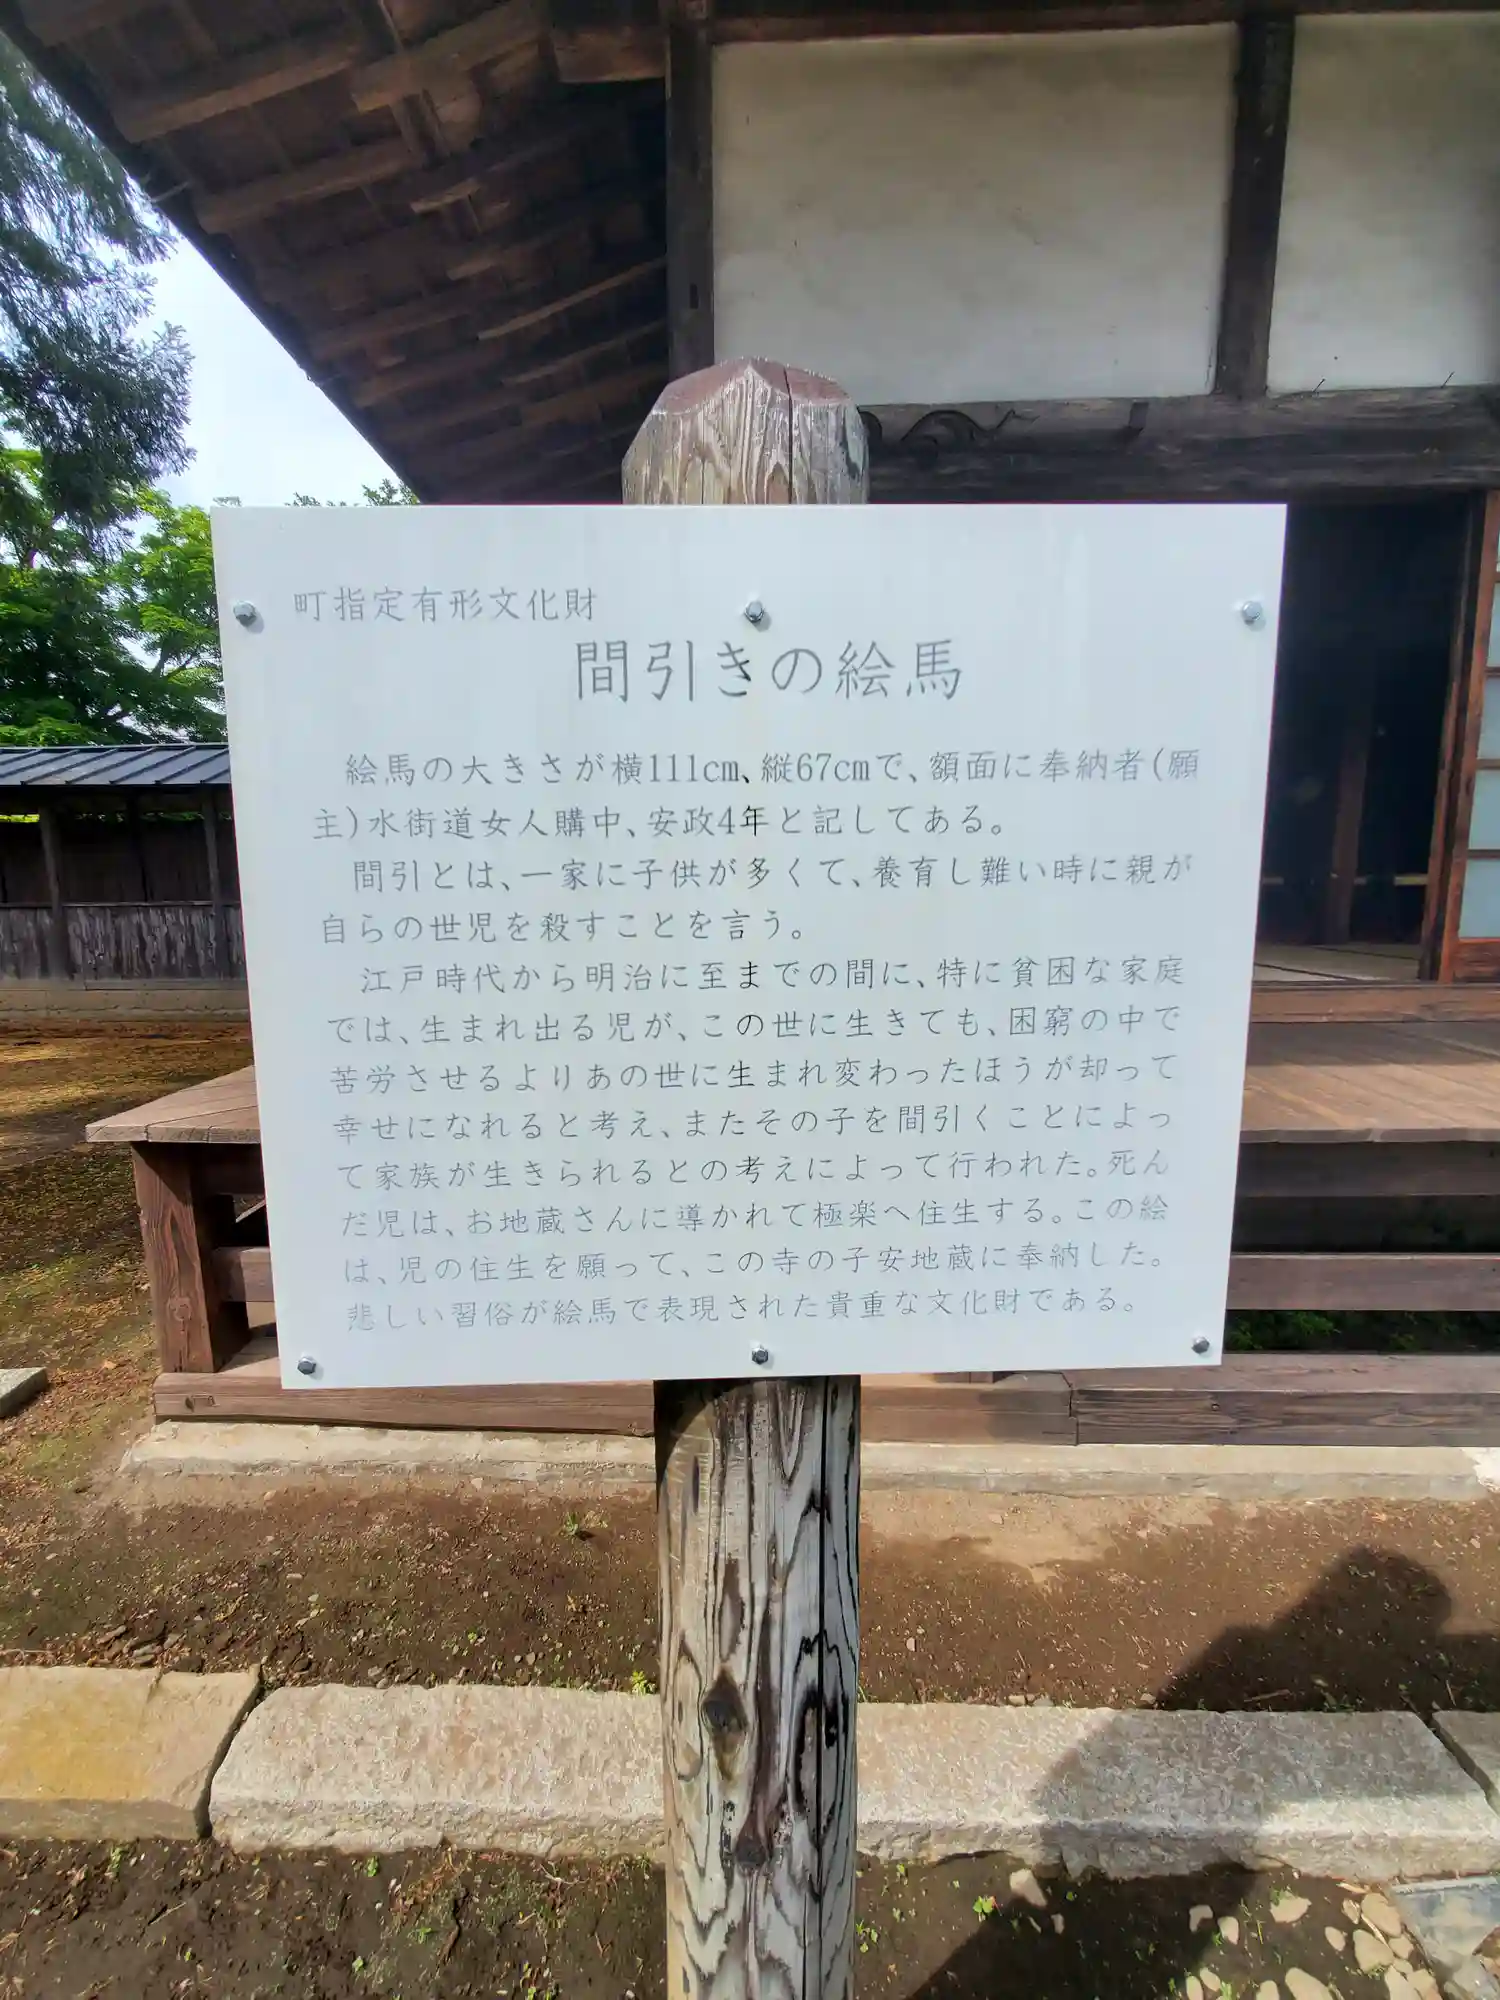 町指定有形文化財
間引きの絵馬
絵馬の大きさが横111cm、縦67cmで、額面に奉納者(願
主)水街道女人購中、安政4年と記してある。
間引とは、一家に子供が多くて、養育し難い時に親が
自らの世児を殺すことを言う。
江戸時代から明治に至までの間に、特に貧困な家庭
では、生まれ出る児が、この世に生きても、困窮の中で
苦労させるよりあの世に生まれ変わったほうが却って
幸せになれると考え、またその子を間引くことによっ
て家族が生きられるとの考えによって行われた。死ん
だ児は、お地蔵さんに導かれて極楽へ住生する。この絵
は、児の住生を願って、この寺の子安地蔵に奉納した。
悲しい習俗が絵馬で表現された貴重な文化財である。